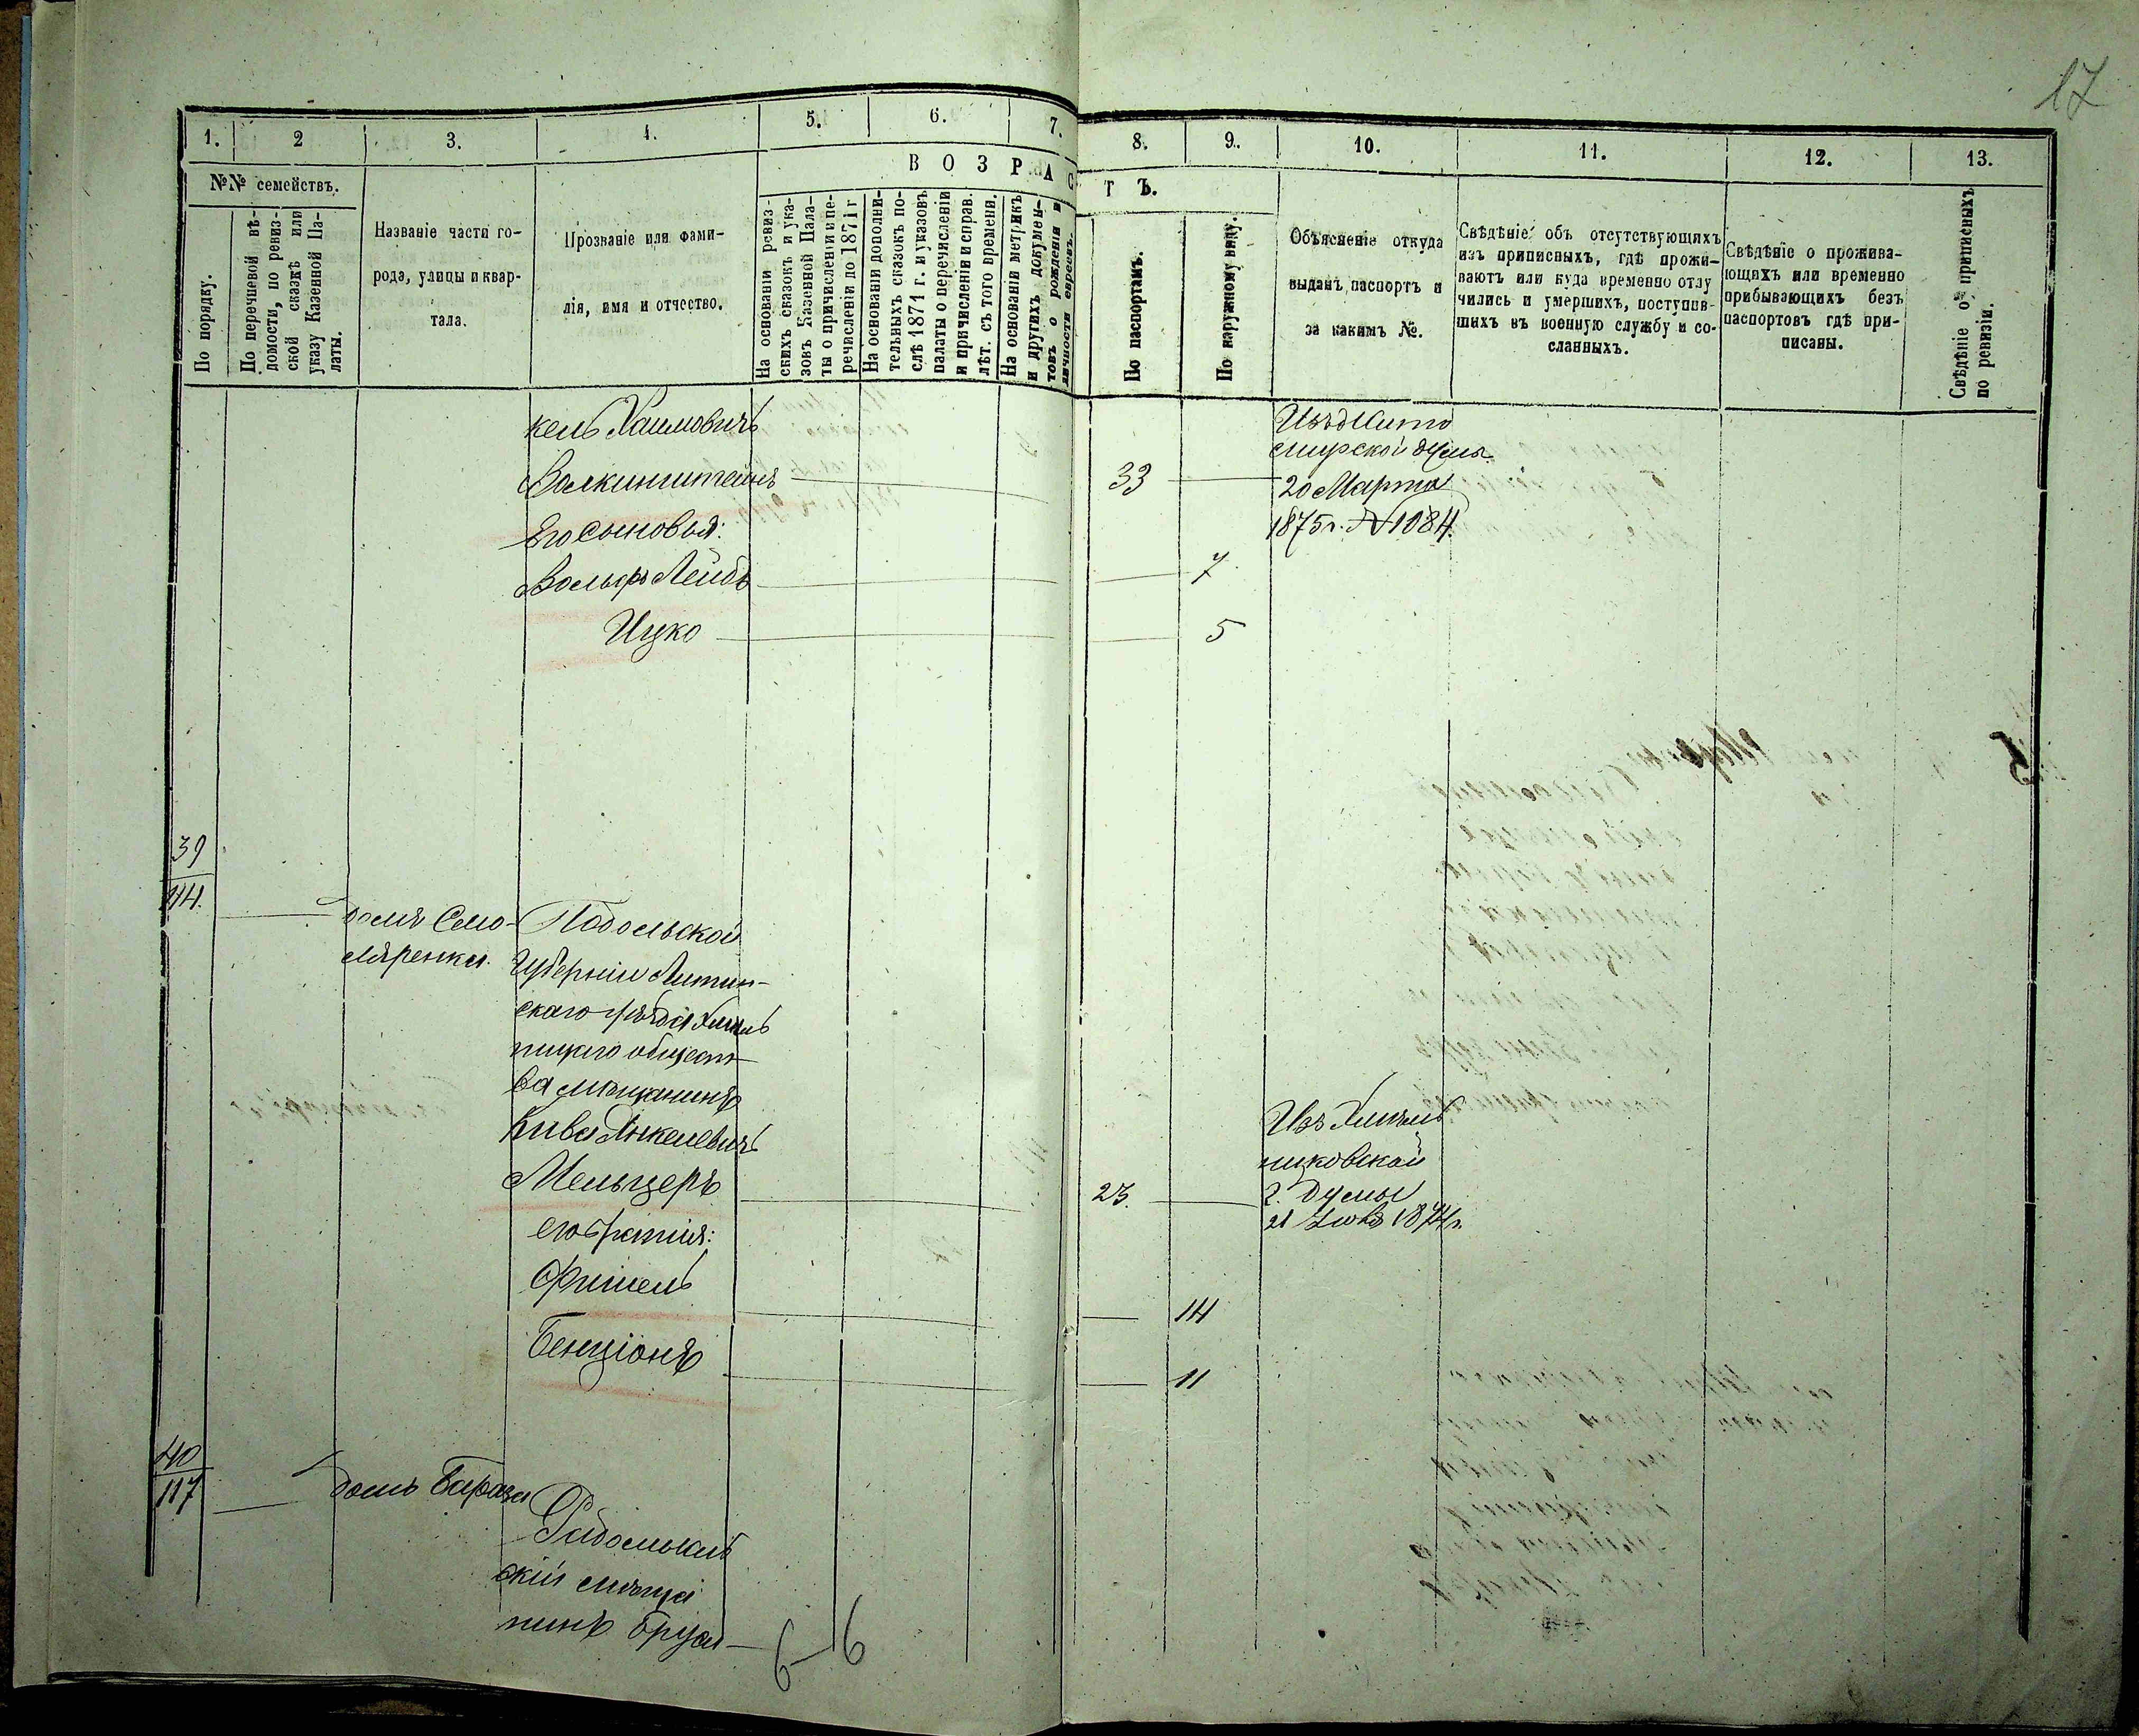 17
1. 2 3. 4. 5. 6. 7. 8. 9. 10. 11. 12. 13.
№№ семействъ.
По порядку.
По перечневой вѣ-
домости, по ревиз-
ской сказкѣ или
указу Казенной Па-
латы.
Названіе части го-
рода, улицы и квар-
тала.
Прозваніе или фами-
лія, имя и отчество.
ВОЗРАСТЪ.
На основаніи ревиз-
скихъ сказокъ и ука-
зовъ Казенной Пала-
ты о причисленіи и пе-
речисленіи до 1871 г
На основаніи дополни-
тельныхъ сказокъ по-
слѣ 1871 г. и указовъ
палаты о перечисленіи
и причисленіи и справ.
лѣт. съ того времени.
На основаніи метрикъ
и другихъ докумен-
товъ о рожденіи и
личности евреевъ.
По паспортамъ.
По наружному виду.
Объясненіе откуда
выданъ паспортъ и
за какимъ №.
Свѣдѣніе объ отсутствующихъ
изъ приписныхъ, гдѣ прожи-
ваютъ или куда временно отлу
чились и умершихъ, поступив-
шихъ въ военную службу и со-
сланныхъ.
Свѣдѣніе о прожива-
ющихъ или временно
прибывающихъ безъ
паспортовъ гдѣ при-
писаны.
Свѣдѣніе о приписныхъ
по ревизіи.
кель Хаимовичъ
Волкинштейнъ
33
Изъ Жито
мирской думы
20 Марта
1875 г. № 1084.
Его сыновья:
Вольфъ Лейбъ
7
Ицко
5
39
114.
домъ Смо-
ляренка
Подольской
Губерніи Литин-
скаго уѣзда Хмѣль
ницкаго общест-
ва мѣщанинъ
Кива Янкелевичъ
Мельцеръ
23.
Изъ Хмѣль
никовской
г. Думы
21 1874 г.
его братія:
Фишель
14
Бенціонъ
11
40
117
домъ Бараза
Радомысль
скій мѣща
нинъ Еруса-
6-6